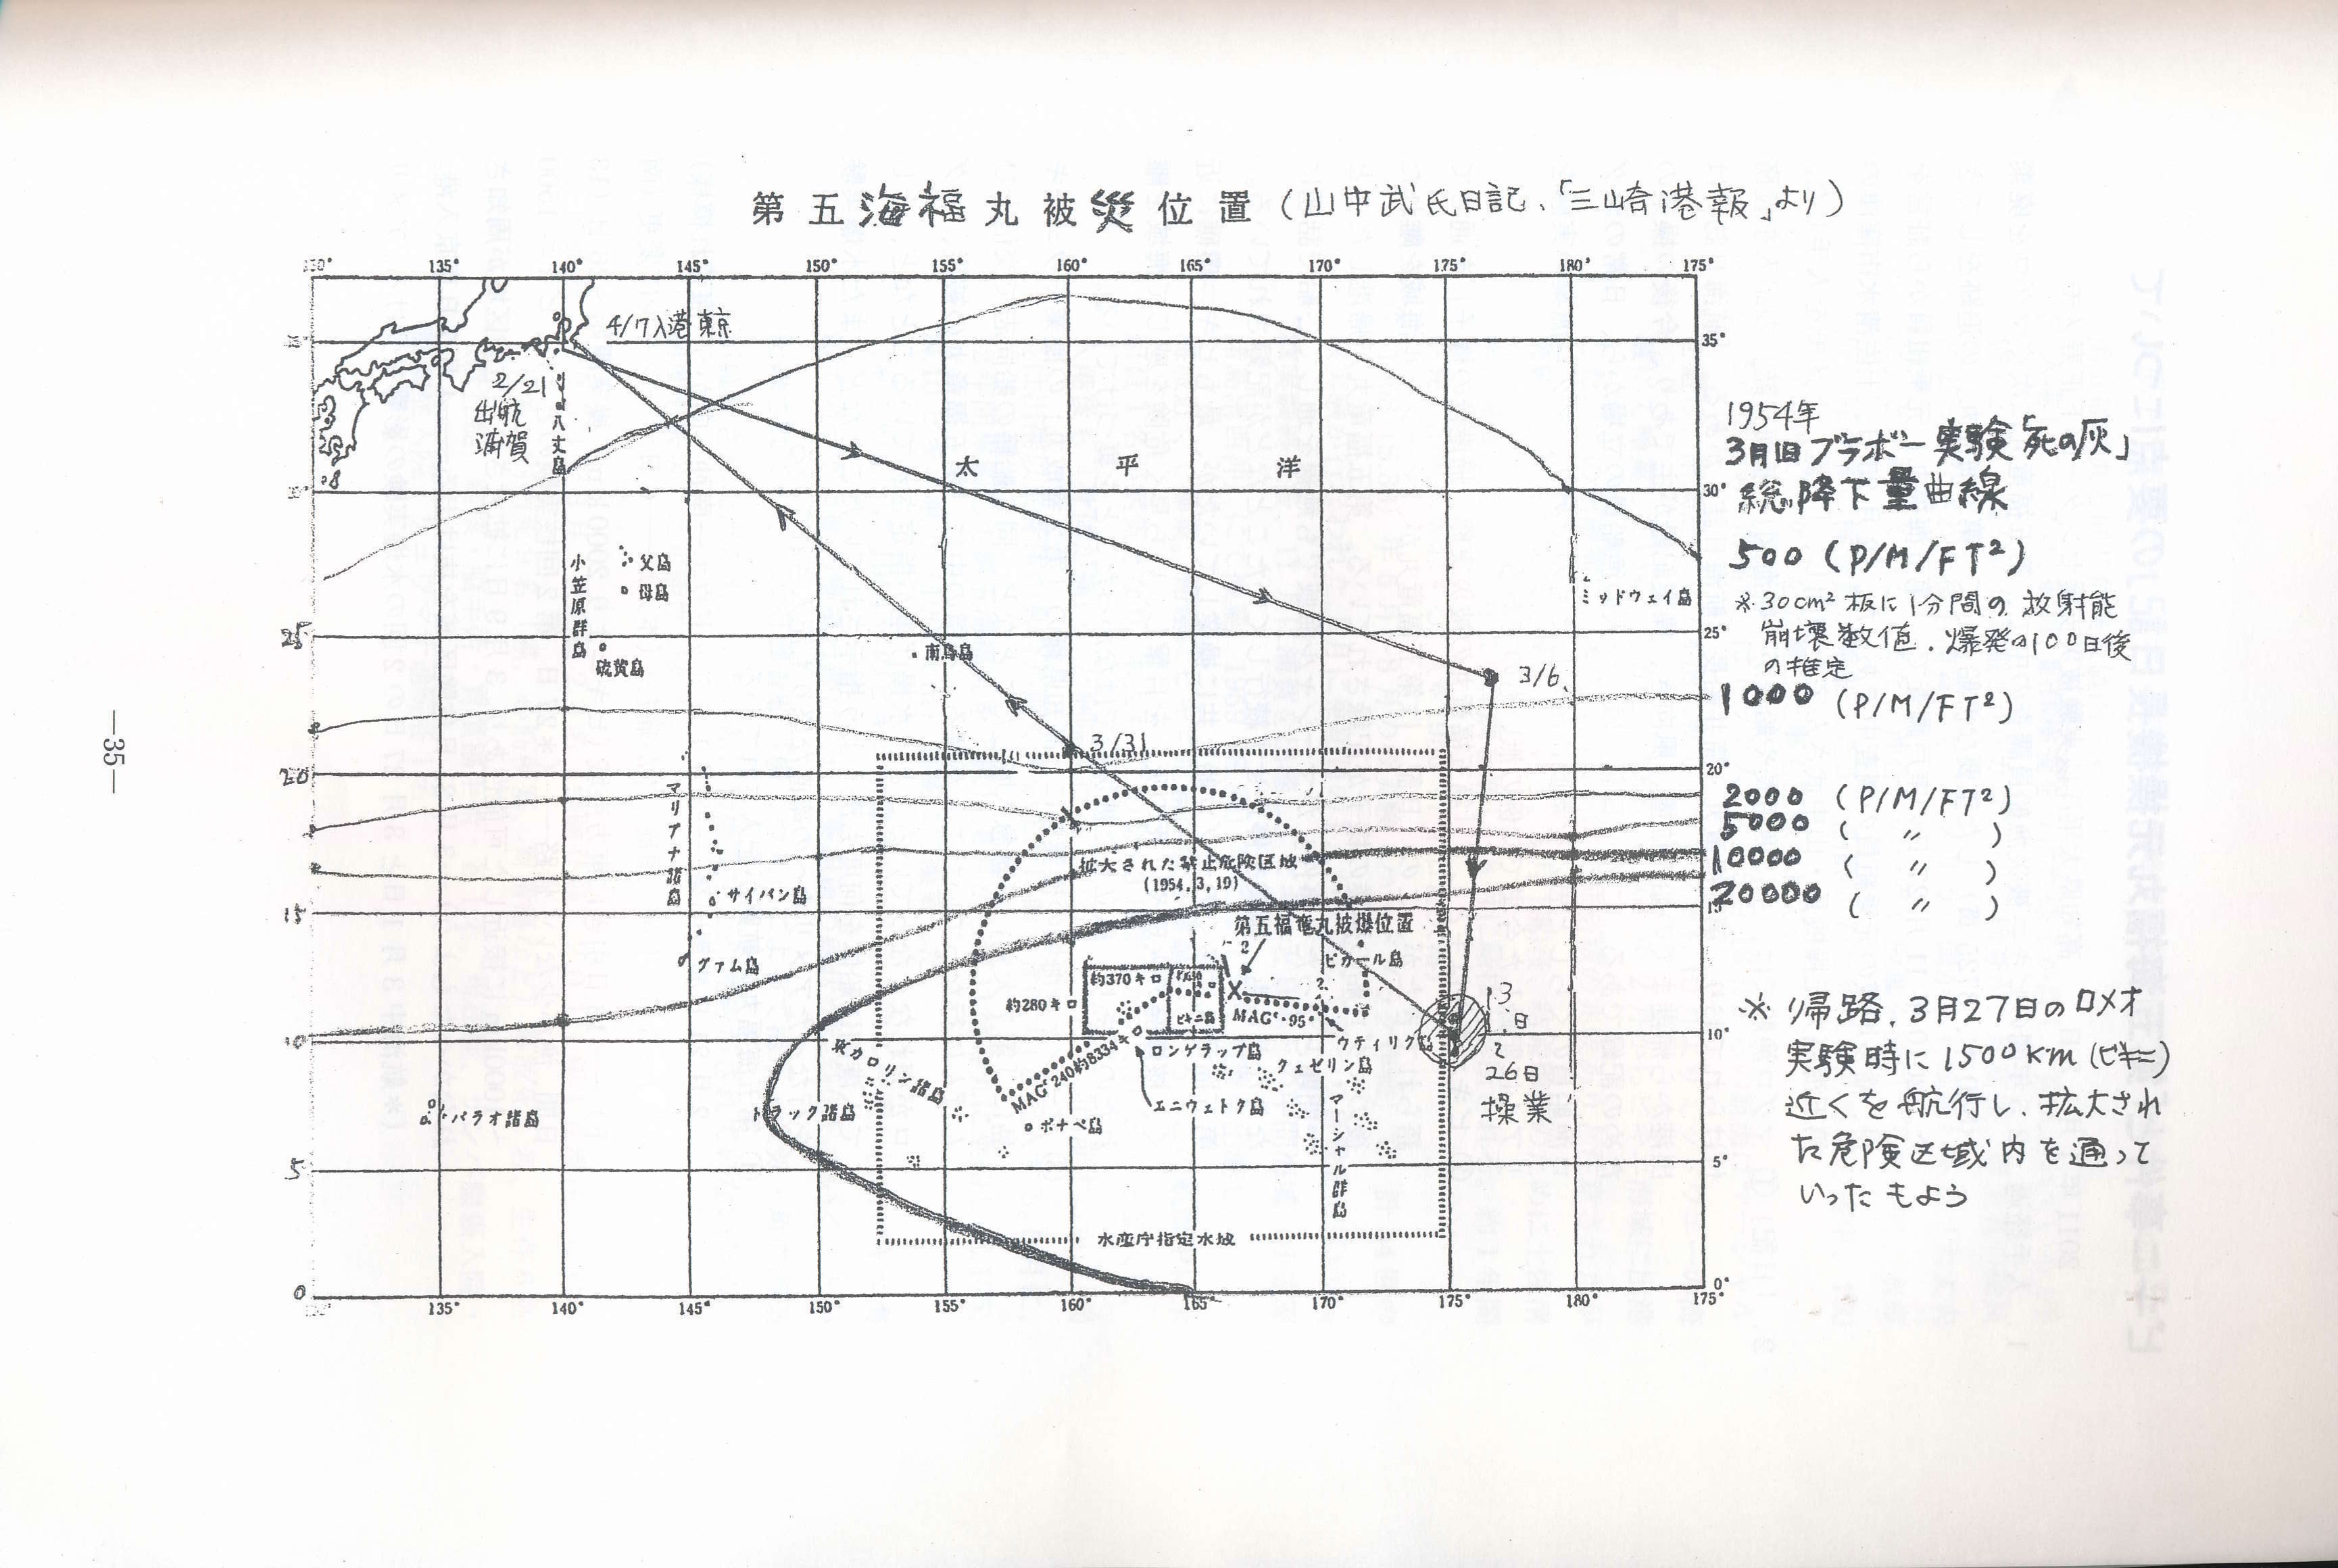 第五海福丸被災位置(山中武氏日記、「三崎港報」より)
130° 135° 140° 145° 150° 155° 160° 165° 170° 175° 180° 175°
4/7入港東京
2/21
出航
浦賀
八丈島
太平洋
35°
30°
25°
20°
5°
0°
10°
25
20
15
10
5
0
小笠原群島
父島
母島
硫黄島
南鳥島
ミッドウェイ島
3/6
3/31
マリアナ諸島
サイパン島
グァム島
拡大された禁止危険区域
(1954.3.19)
第五福竜丸被爆位置
ビカール島
約370キロ
約280キロ
ビキニ島
MAG° 95°
ウティリク島
ロンゲラップ島
クェゼリン島
エニウェトク島
MAG° 240°約8334キロ
東カロリン諸島
トラック諸島
ポナペ島
パラオ諸島
マーシャル群島
水産庁指定水域
13
日
〜
26日
操業
135° 140° 145° 150° 155° 160° 165° 170° 175° 180° 175°
1954年
3月1日ブラボー実験「死の灰」
総降下量曲線
500 (P/M/FT²)
※30cm²板に1分間の放射能
崩壊数値.爆発の100日後
の推定
1000 (P/M/FT²)
2000 (P/M/FT²)
5000 ( 〃 )
10000 ( 〃 )
20000 ( 〃 )
※ 帰路、3月27日のロメオ
実験時に1500Km(ビキニ)
近くを航行し、拡大され
た危険区域内を通って
いったもよう
—35—